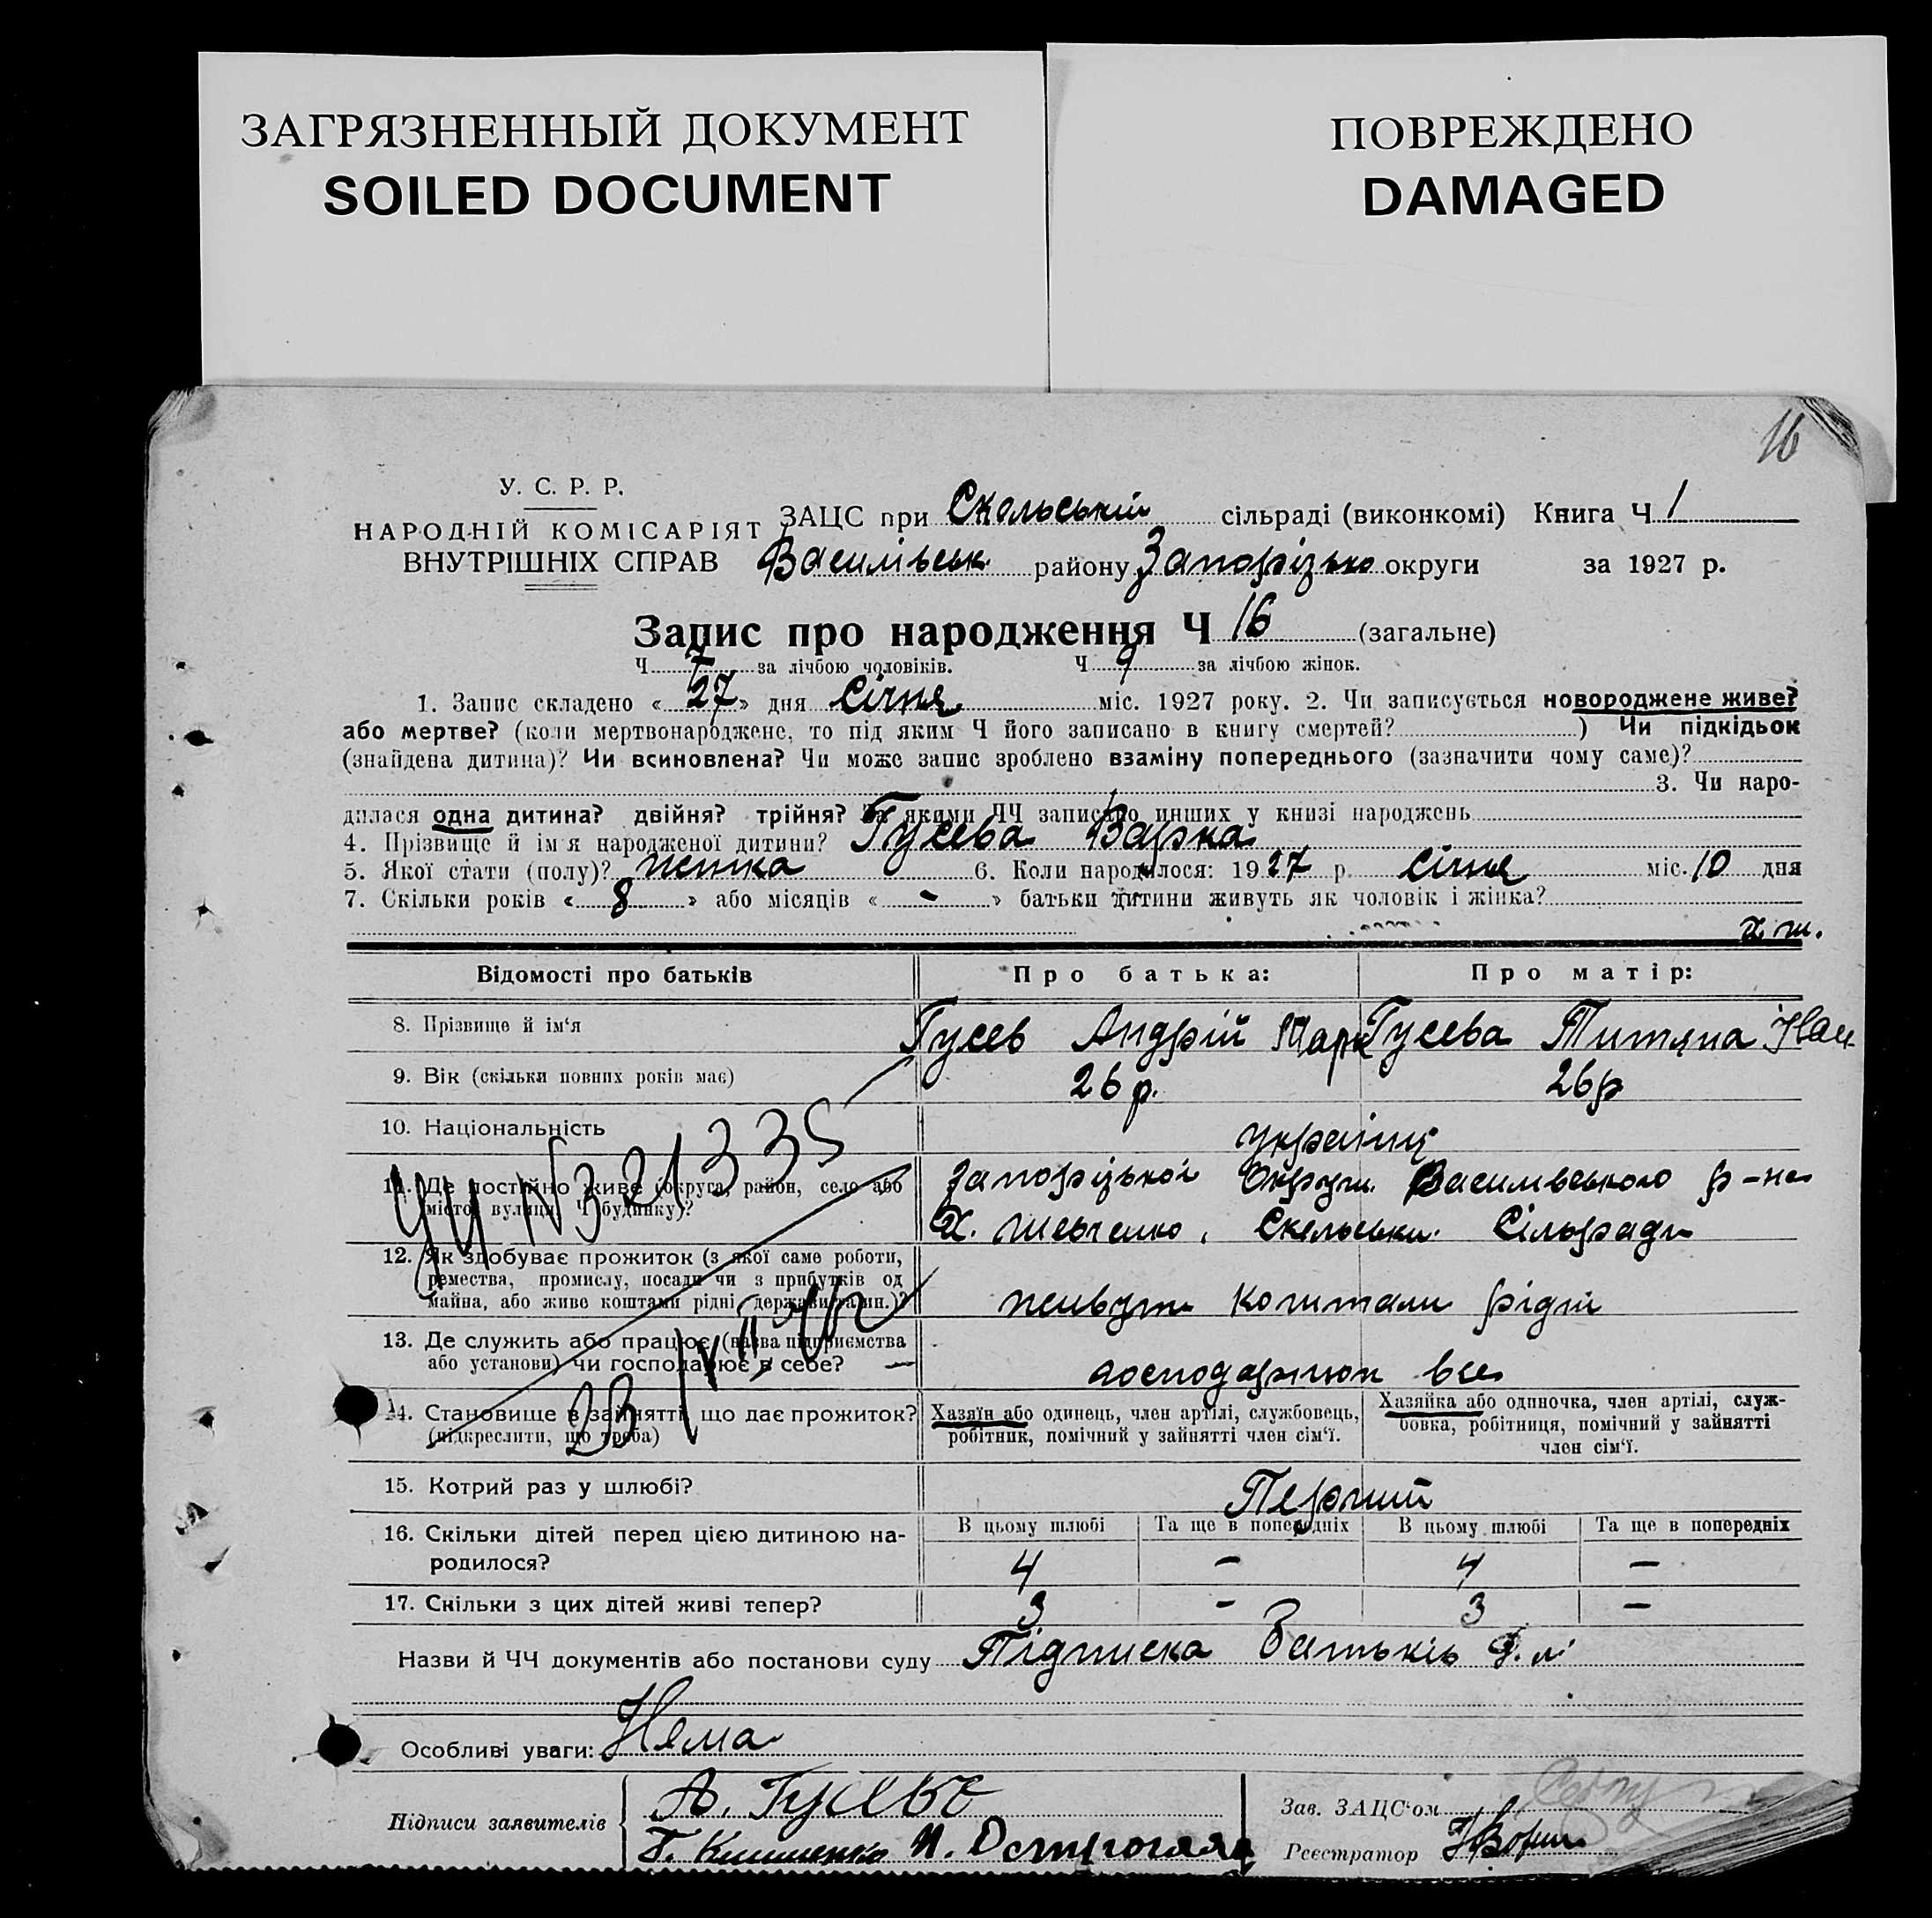 ЗАГРЯЗНЕННЫЙ ДОКУМЕНТ
SOILED DOCUMENT
ПОВРЕЖДЕНО
DAMAGED
16
У. С. Р. Р.
НАРОДНІЙ КОМІСАРІЯТ
ВНУТРІШНІХ СПРАВ
ЗАЦС при Скельській сільраді (виконкомі) Книга Ч 1
Василівськ. району Запорізько округи за 1927 р.
Запис про народження Ч 16 (загальне)
Ч 7 за лічбою чоловіків. Ч 9 за лічбою жінок.
1. Запис складено « 27 » дня Січня міс. 1927 року. 2. Чи записується новороджене живе?
або мертве? (коли мертвонароджене, то під яким Ч його записано в книгу смертей? ) Чи підкідьок
(знайдена дитина)? Чи всиновлена? Чи може запис зроблено взаміну попереднього (зазначити чому саме)?
3. Чи наро-
дилася одна дитина? двійня? трійня? За якими ЧЧ записано инших у книзі народжень
4. Прізвище й ім'я народженої дитини? Гусева Варка
5. Якої стати (полу)? жінка 6. Коли народилося: 1927 р. січня міс. 10 дня
7. Скільки років « 8 » або місяців « - » батьки дитини живуть як чоловік і жінка?
Відомості про батьків
Про батька:
Про матір:
8. Прізвище й ім'я
Гусев Андрій Марк
Гусева Титяна Іван
9. Вік (скільки повних років має)
26 р.
26 р
10. Національність
українці
11. Де постійно живе (округа, район, село або
місто, вулиця, Ч будинку)?
Запорізької Округи Василівського р-на
Х. Шевченко, Скельськи. Сільради
12. Як здобуває прожиток (з якої саме роботи,
ремества, промислу, посади чи з прибутків од
майна, або живе коштами рідні, держави та ин.)?
живуть коштами рідні
13. Де служить або працює (назва підприємства
або установи) чи господарює в себе? —
господарюют в се
14. Становище в зайнятті, що дає прожиток?
(підкреслити, що треба)
Хазяїн або одинець, член артілі, службовець,
робітник, помічний у зайнятті член сім'ї.
Хазяйка або одиночка, член артілі, служ-
бовка, робітниця, помічний у зайнятті
член сім'ї.
15. Котрий раз у шлюбі?
Перший
16. Скільки дітей перед цією дитиною на-
родилося?
В цьому шлюбі Та ще в попередніх В цьому шлюбі Та ще в попередніх
4 - 4 -
17. Скільки з цих дітей живі тепер?
3 - 3 -
Назви й ЧЧ документів або постанови суду Підписка Батьків
Особливі уваги: Нема
Підписи заявителів
А. Гусевъ
Зав. ЗАЦС'ом
Реєстратор